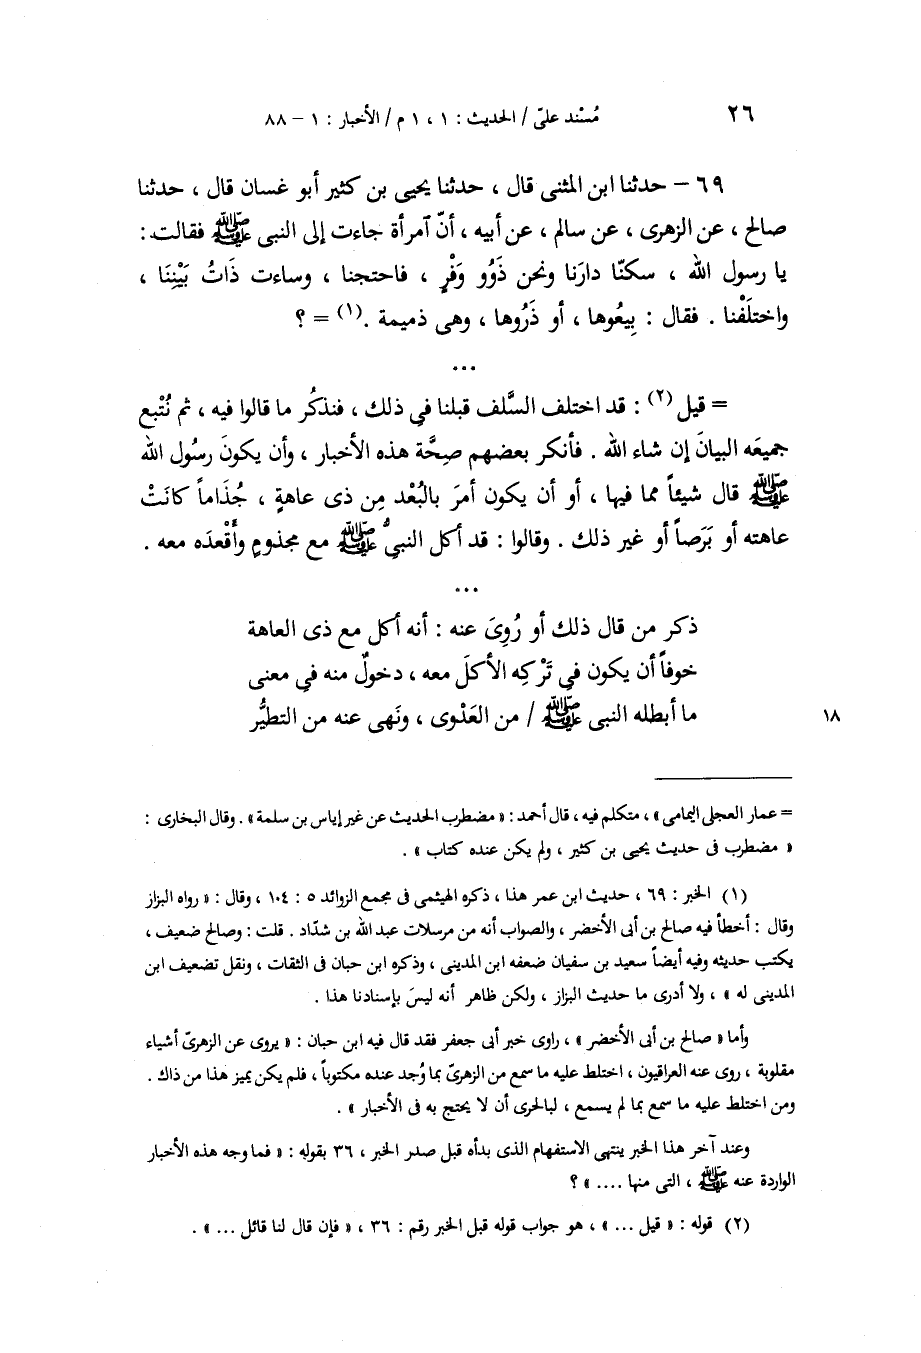 ٢٦ مُسْند عليّ / الحديث : ١ ، ١ م / الأخبار : ١ – ٨٨
٦٩ – حدثنا ابن المثنى قال ، حدثنا يحيى بن كثير أبو غسان قال ، حدثنا
صالح ، عن الزهرى ، عن سالم ، عن أبيه ، أنّ آمرأة جاءت إلى النبى ﷺ فقالت :
يا رسول الله ، سكنّا دارَنا ونحن ذَوُو وَفْرٍ ، فاحتجنا ، وساءت ذَاتُ بَيْنِنَا ،
واختلَفْنا . فقال : بِيعُوها ، أو ذَرُوها ، وهى ذميمة .(١) = ؟
...
= قيل(٢) : قد اختلف السَّلف قبلنا فى ذلك ، فنذكُر ما قالوا فيه ، ثم نُتْبع
جميعَه البيانَ إن شاء الله . فأنكر بعضهم صِحَّة هذه الأخبار ، وأن يكونَ رسُول الله
ﷺ قال شيئاً مما فيها ، أو أن يكون أمرَ بالبُعْد مِن ذى عاهةٍ ، جُذَاماً كانَتْ
عاهته أو بَرَصاً أو غير ذلك . وقالوا : قد أكل النبيُّ ﷺ مع مجذومٍ وأَقْعدَه معه .
...
ذكر من قال ذلك أو رُوِىَ عنه : أنه أكل مع ذى العاهة
خوفاً أن يكون فى تَرْكِه الأكلَ معه ، دخولٌ منه فى معنى
ما أبطله النبى ﷺ / من العَدْوى ، ونَهى عنه من التطيُّر
١٨
= عمار العجلى اليمامى » ، متكلم فيه ، قال أحمد : « مضطرب الحديث عن غير إياس بن سلمة » . وقال البخارى :
« مضطرب فى حديث يحيى بن كثير ، ولم يكن عنده كتاب » .
(١) الخبر : ٦٩ ، حديث ابن عمر هذا ، ذكره الهيثمى فى مجمع الزوائد ٥ : ١٠٤ ، وقال : « رواه البزاز
وقال : أخطأ فيه صالح بن أبى الأخضر ، والصواب أنه من مرسلات عبد الله بن شدّاد . قلت : وصالح ضعيف ،
يكتب حديثه وفيه أيضاً سعيد بن سفيان ضعفه ابن المدينى ، وذكره ابن حبان فى الثقات ، ونقل تضعيف ابن
المدينى له » ، ولا أدرى ما حديث البزاز ، ولكن ظاهر أنه ليسَ بإسنادنا هذا .
وأما « صالح بن أبى الأخضر » ، راوى خبر أبى جعفر فقد قال فيه ابن حبان : « يروى عن الزهرىّ أشياء
مقلوبة ، روى عنه العراقيون ، اختلط عليه ما سمع من الزهرىّ بما وُجد عنده مكتوباً ، فلم يكن يميز هذا من ذاك .
ومن اختلط عليه ما سمع بما لم يسمع ، لبالحرى أن لا يحتج به فى الأخبار » .
وعند آخر هذا الخبر ينتهى الاستفهام الذى بدأه قبل صدر الخبر ، ٣٦ بقوله : « فما وجه هذه الأخبار
الواردة عنه ﷺ ، التى منها .... » ؟
(٢) قوله : « قيل ... » ، هو جواب قوله قبل الخبر رقم : ٣٦ ، « فإن قال لنا قائل ... » .